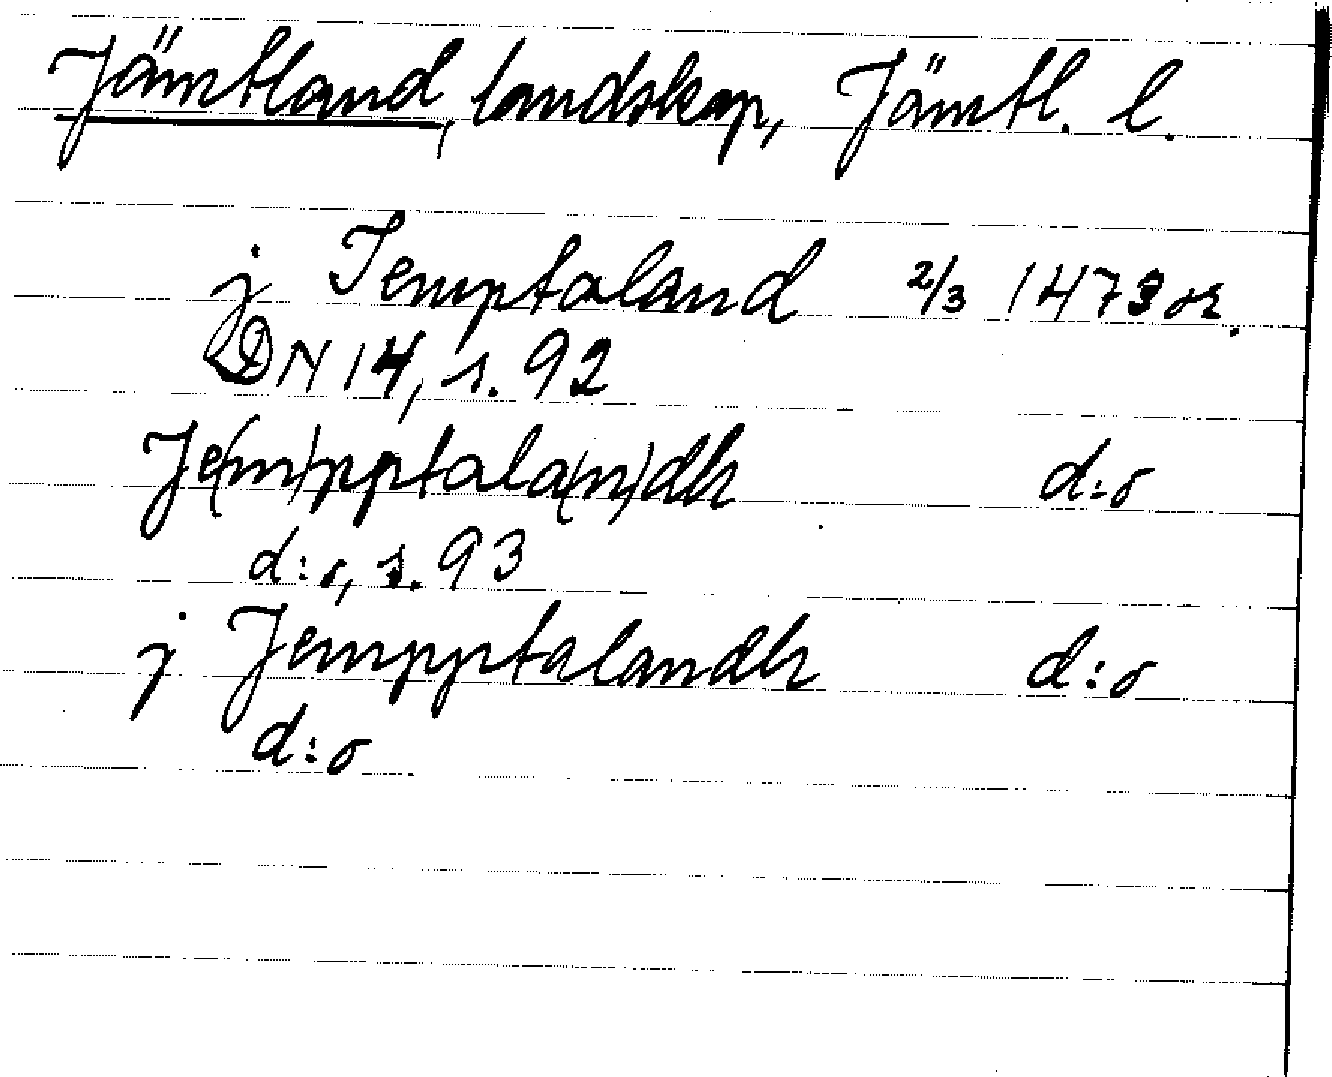 Jämtland, landskap, Jämtl. l.
j Jemptaland 2/3 1473 or.
DN 14, s. 92
Je(m)pptala(n)dh d:o
d:o, s. 93
j Jempptalandh d:o
d:o